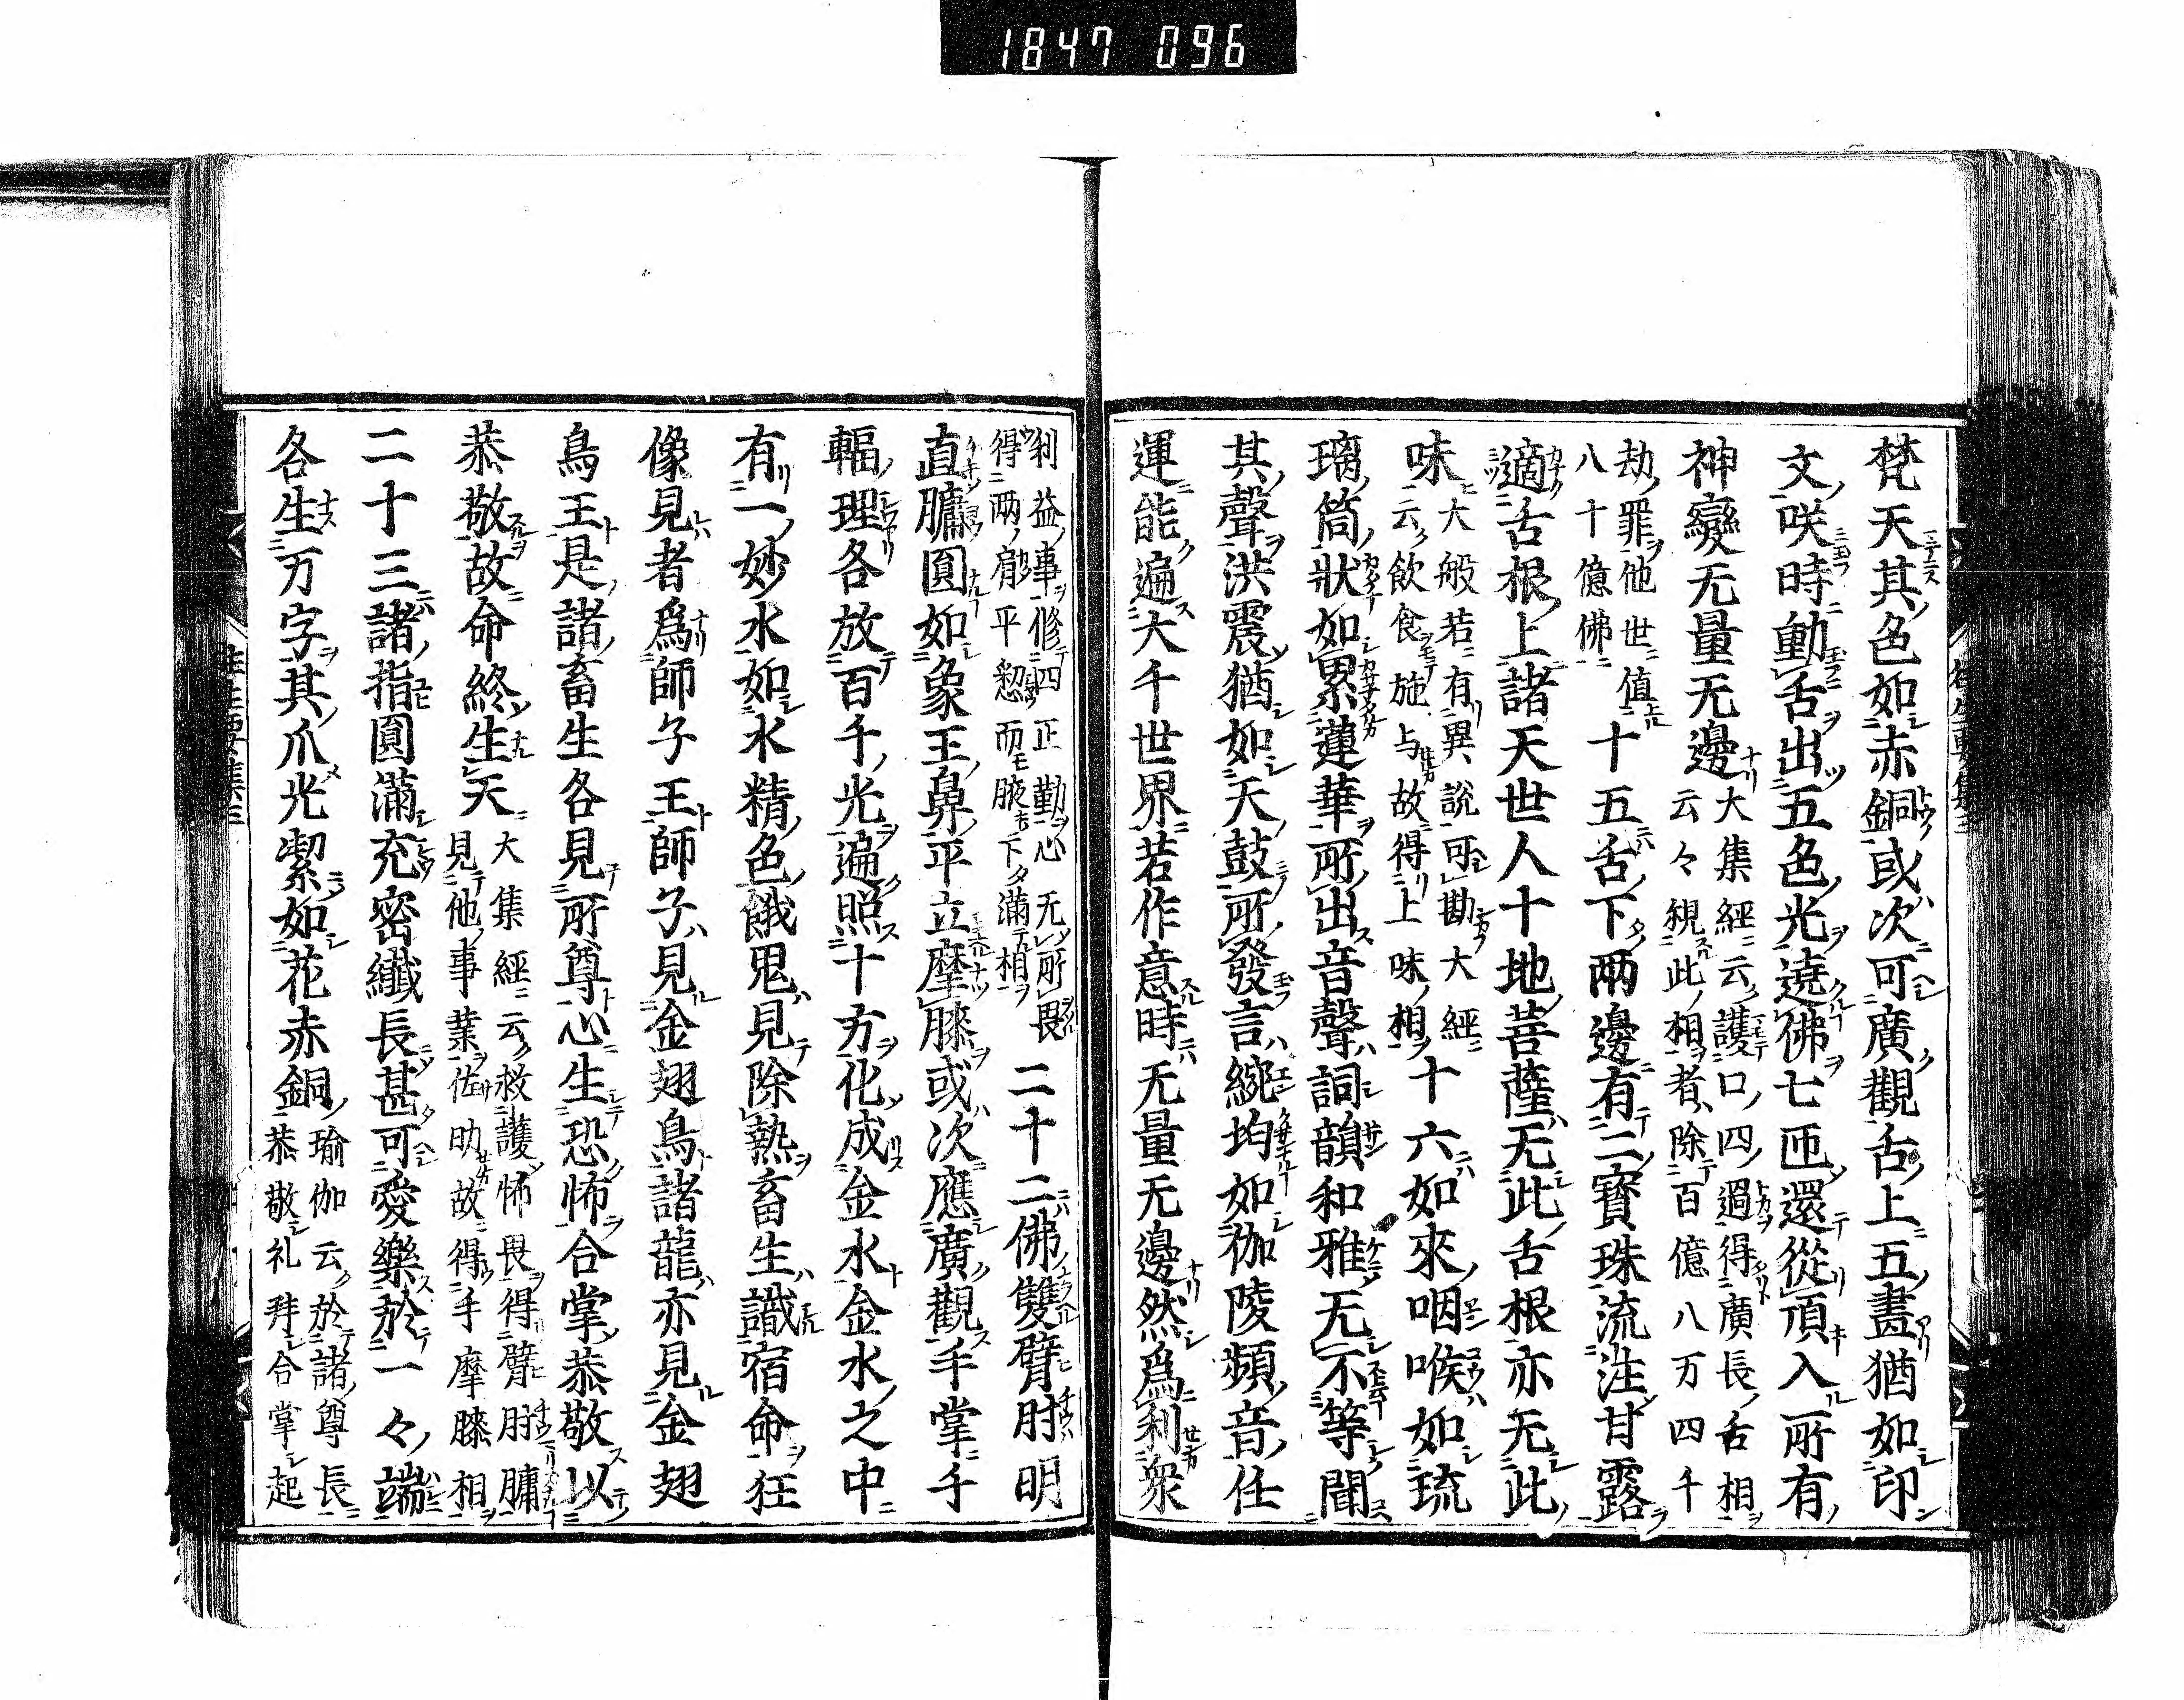 1847 096
梵天其色如赤銅或次可廣觀舌上五畫猶如印
文咲時動舌出五色光遶佛七匝還從頂入所有
神變无量无邊大集經云護口四過得廣長舌相
云々觀此相者除百億八万四千
劫罪他世値
八十億佛
十五舌下兩邊有二寶珠流注甘露
適舌根上諸天世人十地菩薩无此舌根亦无此
味大般若有異說可勘大經
云飲食施与故得上味相
十六如來咽喉如琉
璃筒狀如累蓮華所出音聲詞韻和雅无不等聞
其聲洪震猶如天鼓所發言綩均如伽陵頻音任
運能遍大千世界若作意時无量无邊然爲利衆
利益事修四正勤心无所畏
得兩肩平愸而腋下滿相
二十二佛雙臂肘明
直臃圓如象王鼻平立摩膝或次應廣觀手掌千
輻理各放百千光遍照十方化成金水金水之中
有一妙水如水精色餓鬼見除熱畜生識宿命狂
像見者爲師子王師子見金翅鳥諸龍亦見金翅
鳥王是諸畜生各見所尊心生恐怖合掌恭敬以
恭敬故命終生天大集經云救護怖畏得臂肘臃
見他事業佐助故得手摩膝相
二十三諸指圓滿充密纖長甚可愛樂於一々端
各生万字其爪光潔如花赤銅瑜伽云於諸尊長
恭敬礼拜合掌起
往生要集三